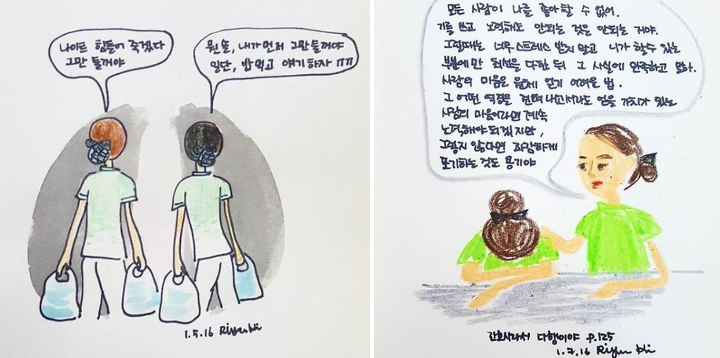 나이트 힘들어 죽겠다
그만 둘꺼야
뭔솔, 내가 먼저 그만둘꺼야
일단, 밥먹고 얘기하자 ㅠㅠ
1.5.16 Riyun bli
모든 사람이 나를 좋아할 수 없어.
기를 쓰고 노력해도 안되는 것은 안되는 거야.
그럴때는 너무 스트레스 받지 말고 니가 할수 있는
부분에만 최선을 다한 뒤 그 사실에 만족하고 말아.
사람의 마음은 원래 얻기 어려운 법.
그 어떤 역경을 견뎌내고서라도 얻을 가치가 있는
사람의 마음이라면 계속
노력해야 되겠지만,
그렇지 않다면 과감하게
포기하는 것도 용기야
간호사라서 다행이야 P.125
1.7.16 Riyun bli